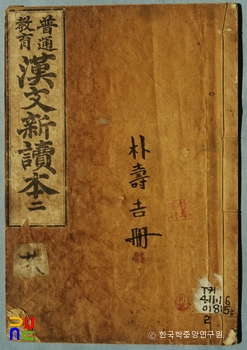 普通
教育
漢文新讀本 二
朴壽吉冊
공
411.16
2
한국학중앙연구원